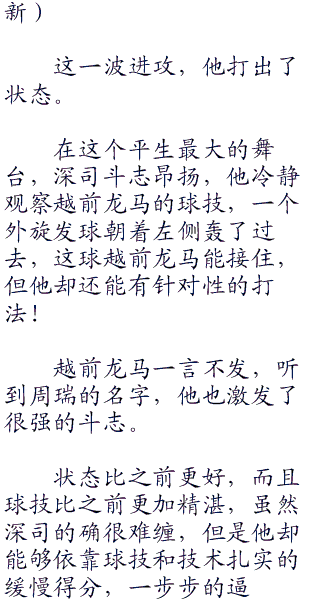 新）
这一波进攻，他打出了
状态。
在这个平生最大的舞
台，深司斗志昂扬，他冷静
观察越前龙马的球技，一个
外旋发球朝着左侧轰了过
去，这球越前龙马能接住，
但他却还能有针对性的打
法！
越前龙马一言不发，听
到周瑞的名字，他也激发了
很强的斗志。
状态比之前更好，而且
球技比之前更加精湛，虽然
深司的确很难缠，但是他却
能够依靠球技和技术扎实的
缓慢得分，一步步的逼